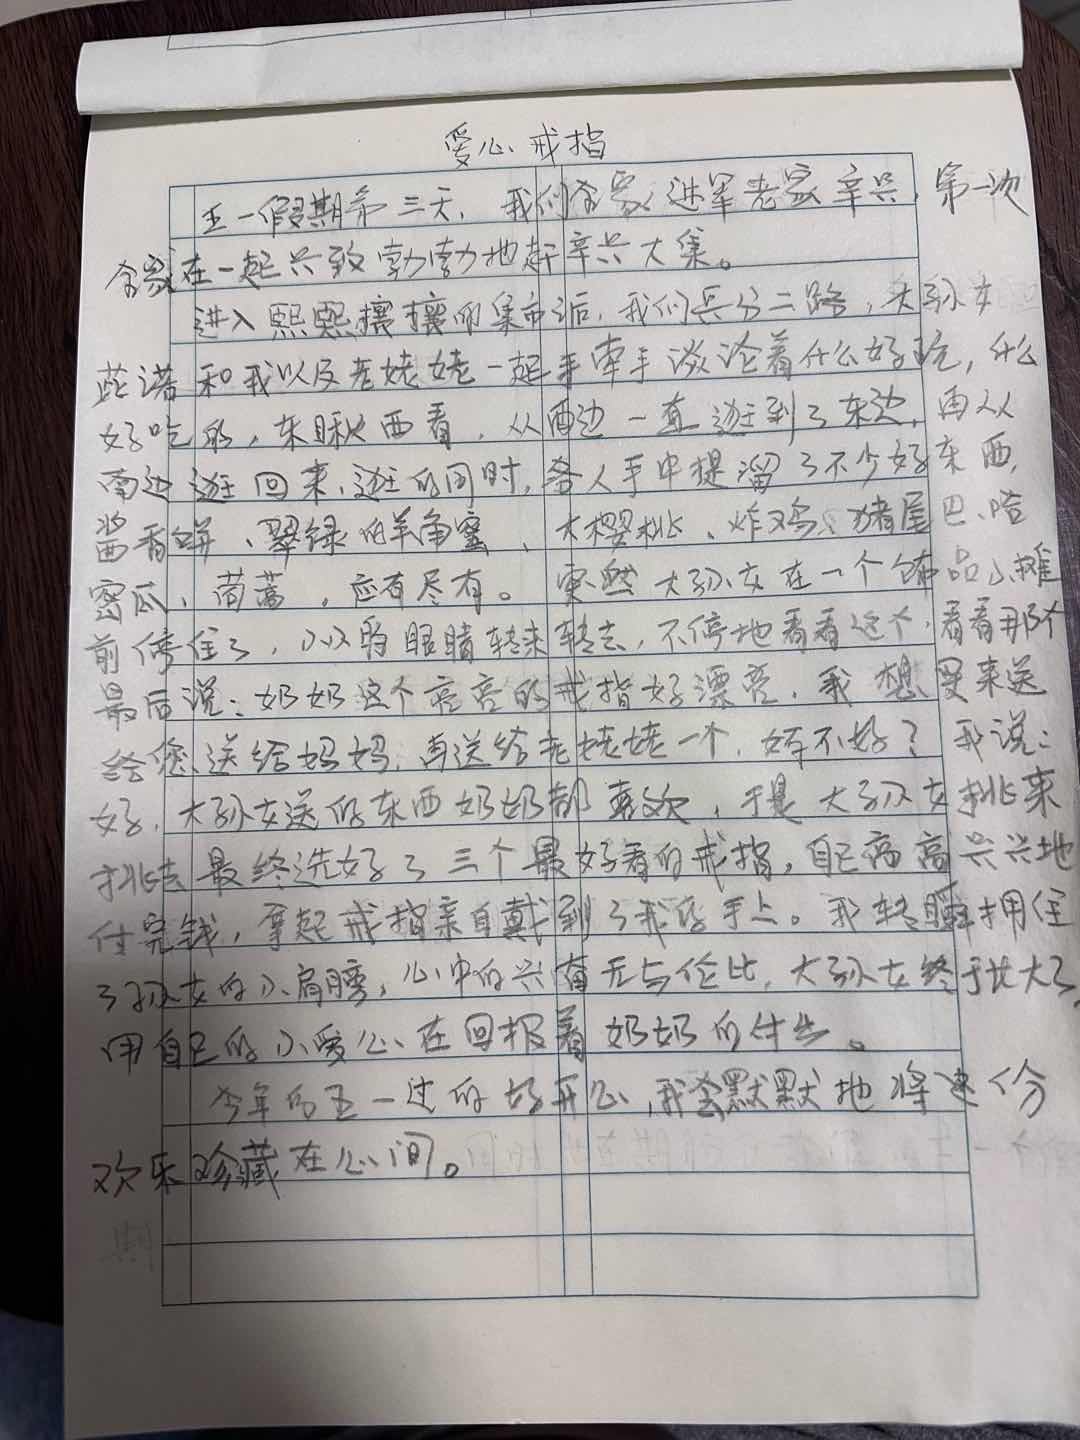 爱心戒指
五一假期第三天，我们全家进军老家辛兴，第一次
全家在一起兴致勃勃地赶辛兴大集。
进入熙熙攘攘的集市后，我们兵分二路，大孙女
芷诺和我以及老姥姥一起手牵手谈论着什么好玩，什么
好吃的，东瞅西看，从西边一直逛到了东边，再从
南边逛回来，逛的同时，各人手中提溜了不少好东西，
酱香饼、翠绿的羊角蜜、大樱桃、炸鸡、猪尾巴、哈
密瓜、茼蒿，应有尽有。突然大孙女在一个饰品小摊
前停住了，小小的眼睛转来转去，不停地看看这个，看看那个
最后说：奶奶这个亮亮的戒指好漂亮，我想买来送
给您，送给妈妈，再送给老姥姥一个，好不好？我说：
好，大孙女送的东西奶奶都喜欢，于是大孙女挑来
挑去最终选好了三个最好看的戒指，自己高高兴兴地
付完钱，拿起戒指亲自戴到了我的手上。我转身拥住
了孙女的小肩膀，心中的兴奋无与伦比，大孙女终于长大了，
用自己的小爱心在回报着奶奶的付出。
今年的五一过的好开心，我会默默地将这份
欢乐珍藏在心间。